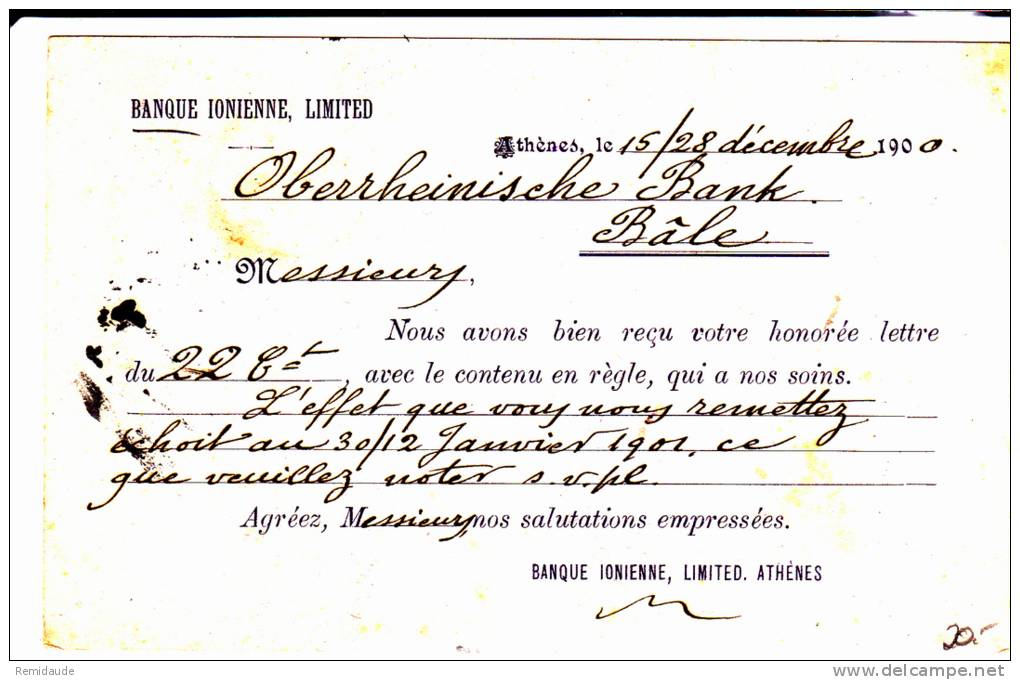 BANQUE IONIENNE, LIMITED
Athènes, le 15/28 décembre 1900.
Oberrheinische Bank.
Bâle
Messieurs,
Nous avons bien reçu votre honorée lettre
du 22 Ct, avec le contenu en règle, qui a nos soins.
L'effet que vous nous remettez
échoit au 30/12 Janvier 1901, ce
que veuillez noter s.v.pl.
Agréez, Messieurs, nos salutations empressées.
BANQUE IONIENNE, LIMITED. ATHÈNES
20.-
Remidaude
delcampe.net